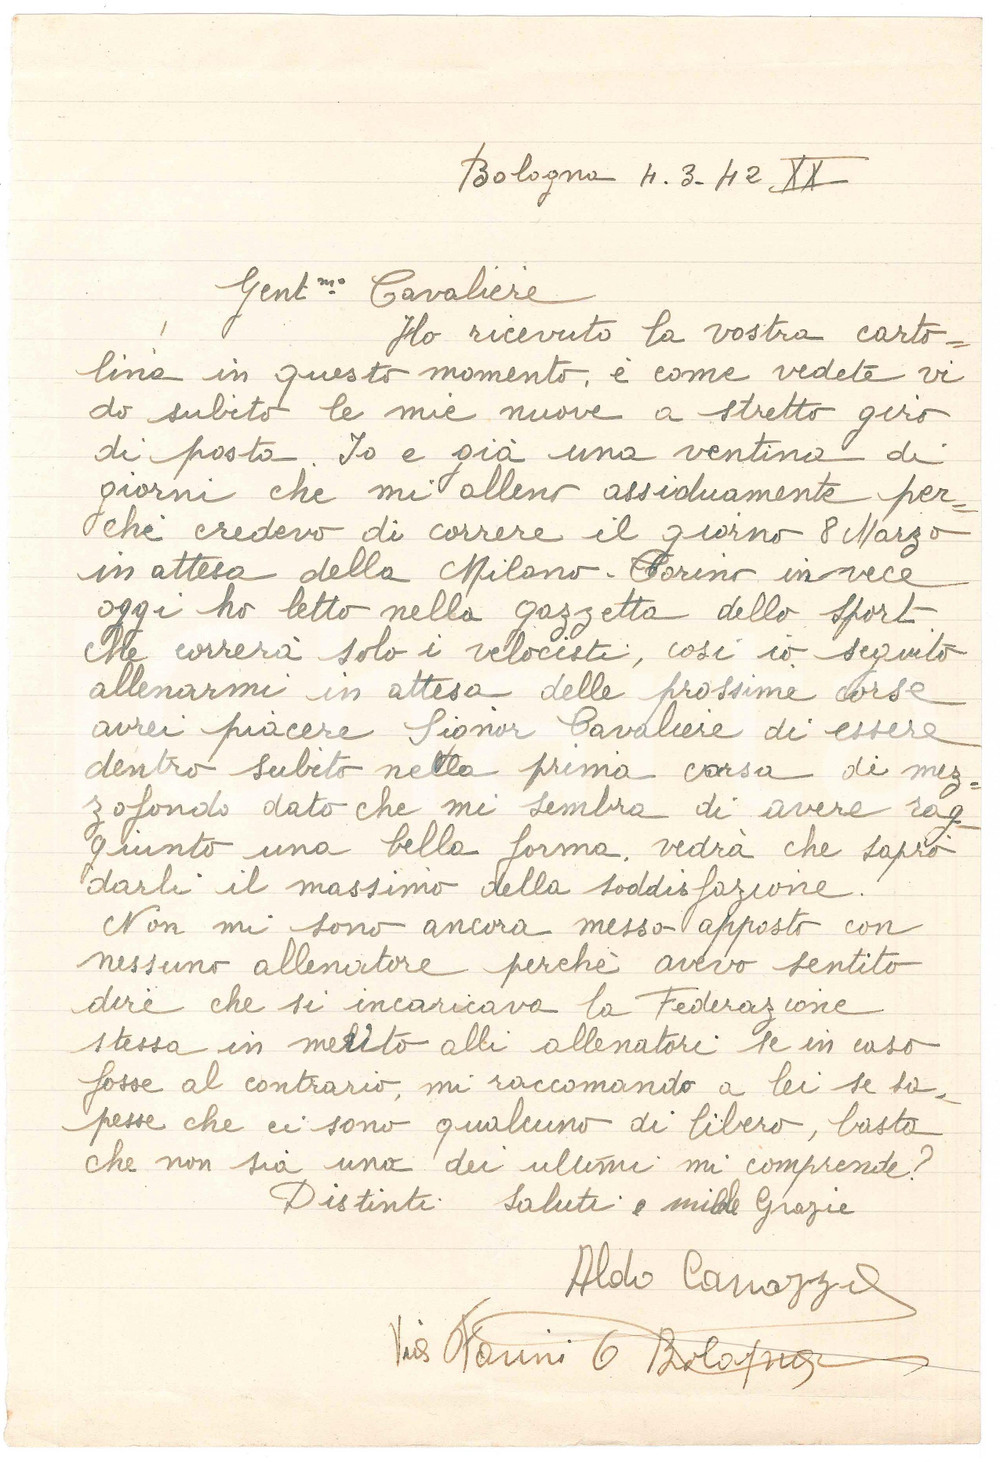 Bologna 4.3.42 XX
Gent.mo Cavaliere
Ho ricevuto la vostra carto=
lina in questo momento, e come vedete vi
do subito le mie nuove a stretto giro
di posta. Io e già una ventina di
giorni che mi alleno assiduamente per=
ché credevo di correre il giorno 8 Marzo
in attesa della Milano-Torino invece
oggi ho letto nella gazzetta dello sport
che correrà solo i velocisti, cosi io seguito
allenarmi in attesa delle prossime corse
avrei piacere Signor Cavaliere di essere
dentro subito nella prima corsa di mez=
zofondo dato che mi sembra di avere rag
giunto una bella forma. vedrà che saprò
darli il massimo della soddisfazione.
Non mi sono ancora messo apposto con
nessuno allenatore perché avevo sentito
dire che si incaricava la Federazione
stessa in merito alli allenatori se in caso
fosse al contrario, mi raccomando a lei se sa=
pesse che ci sono qualcuno di libero, basta
che non sia uno dei ultimi mi comprende?
Distinti saluti e mille Grazie
Aldo Canazza
Via Farini 6 Bologna